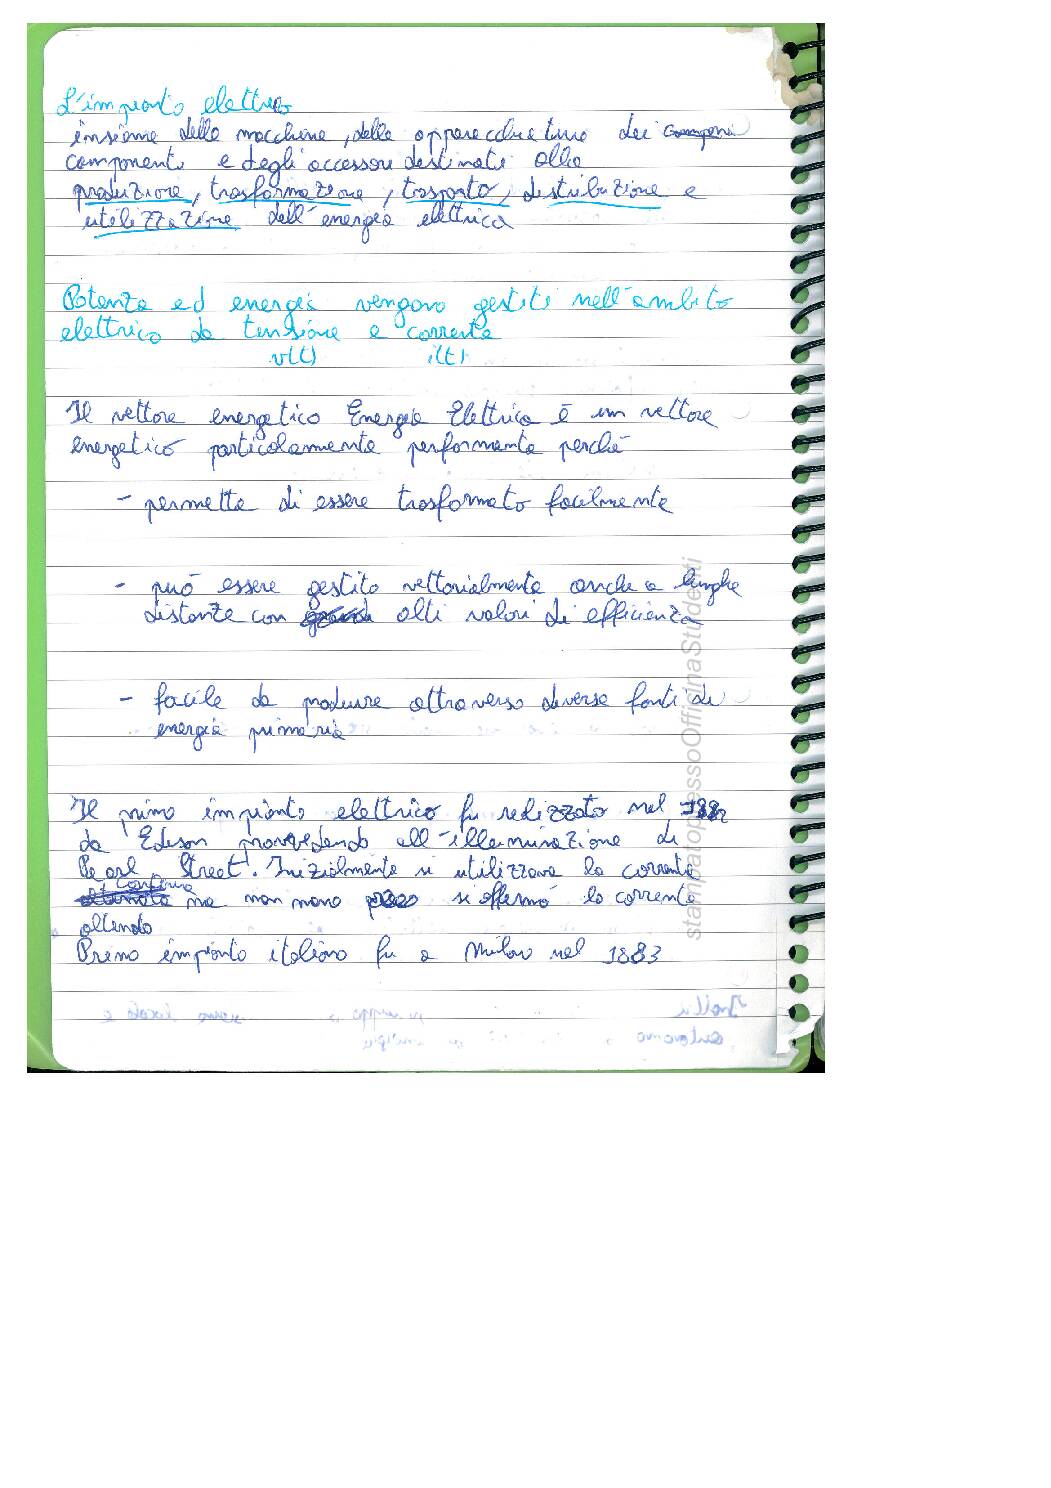 L'impianto elettrico
insieme delle macchine, delle apparecchiature dei
componenti e degli accessori destinati alla
produzione, trasformazione, trasporto, distribuzione e
utilizzazione dell'energia elettrica
Potenza ed energia vengono gestiti nell'ambito
elettrico da tensione e corrente
v(t) i(t)
Il vettore energetico Energia Elettrica è un vettore
energetico particolarmente performante perché
- permette di essere trasformato facilmente
- può essere gestito vettorialmente anche a lunghe
distanze con alti valori di efficienza
- facile da produrre attraverso diverse fonti di
energia primaria
Il primo impianto elettrico fu relizzato nel
da Edison provvedendo all'illuminazione di
Pearl Street. Inizialmente si utilizzava la corrente
continua
ma man mano si affermò la corrente
altenda
Primo impianto italiano fu a Milano nel 1883
stampatopressoOfficinaStudenti